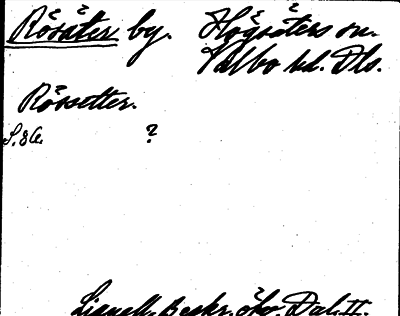 Rösäter by. Högsäters sn.
Valbo hd. Dls.
Rörsetter.
S. 86. ?
Lignell, Beskr. öfv. Dal. II.